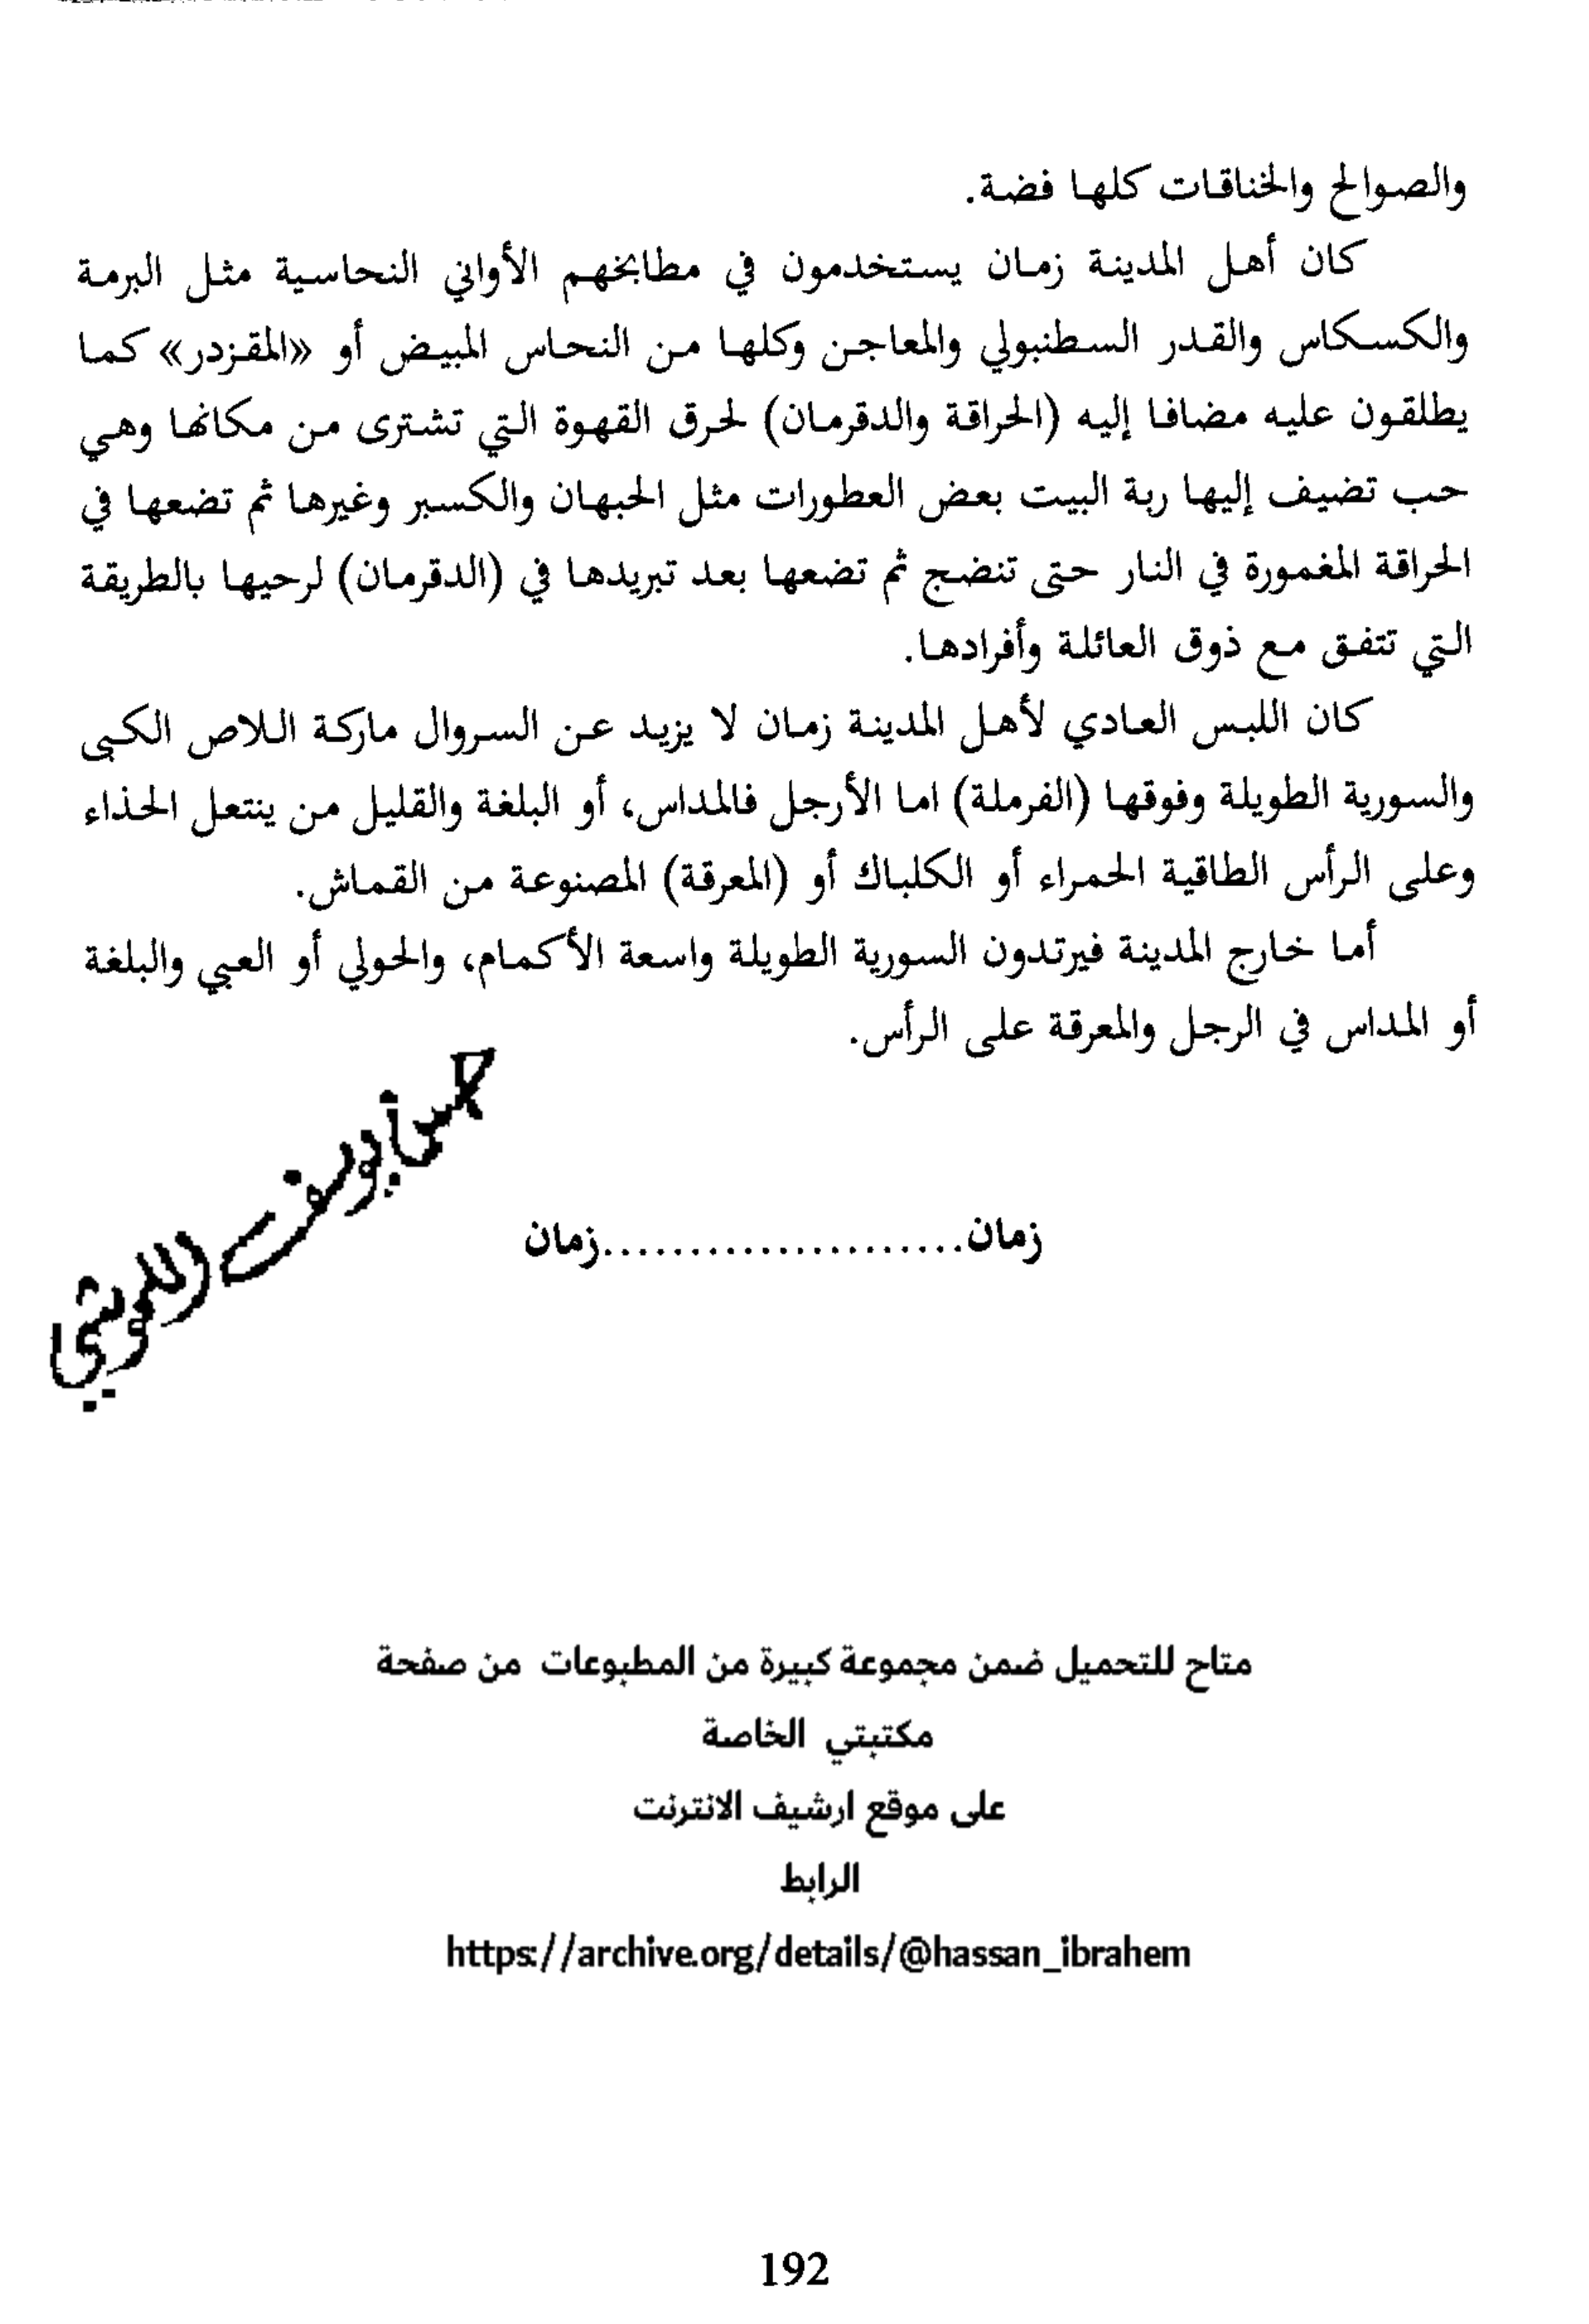 والصوالح والخناقات كلها فضة.
كان أهل المدينة زمان يستخدمون في مطابخهم الأواني النحاسية مثل البرمة
والكسكاس والقدر السطنبولي والمعاجن وكلها من النحاس المبيض أو «المقزدر» كما
يطلقون عليه مضافا إليه (الحراقة والدقرمان) لحرق القهوة التي تشترى من مكانها وهي
حب تضيف إليها ربة البيت بعض العطورات مثل الحبهان والكسبر وغيرها ثم تضعها في
الحراقة المغمورة في النار حتى تنضج ثم تضعها بعد تبريدها في (الدقرمان) لرحيها بالطريقة
التي تتفق مع ذوق العائلة وأفرادها.
كان اللبس العادي لأهل المدينة زمان لا يزيد عن السروال ماركة اللاص الكبى
والسورية الطويلة وفوقها (الفرملة) اما الأرجل فالمداس، أو البلغة والقليل من ينتعل الحذاء
وعلى الرأس الطاقية الحمراء أو الكلباك أو (المعرقة) المصنوعة من القماش.
أما خارج المدينة فيرتدون السورية الطويلة واسعة الأكمام، والحولي أو العبي والبلغة
أو المداس في الرجل والمعرقة على الرأس.
زمان.....................زمان
متاح للتحميل ضمن مجموعة كبيرة من المطبوعات من صفحة
مكتبتي الخاصة
على موقع ارشيف الانترنت
الرابط
https://archive.org/details/@hassan_ibrahem
192